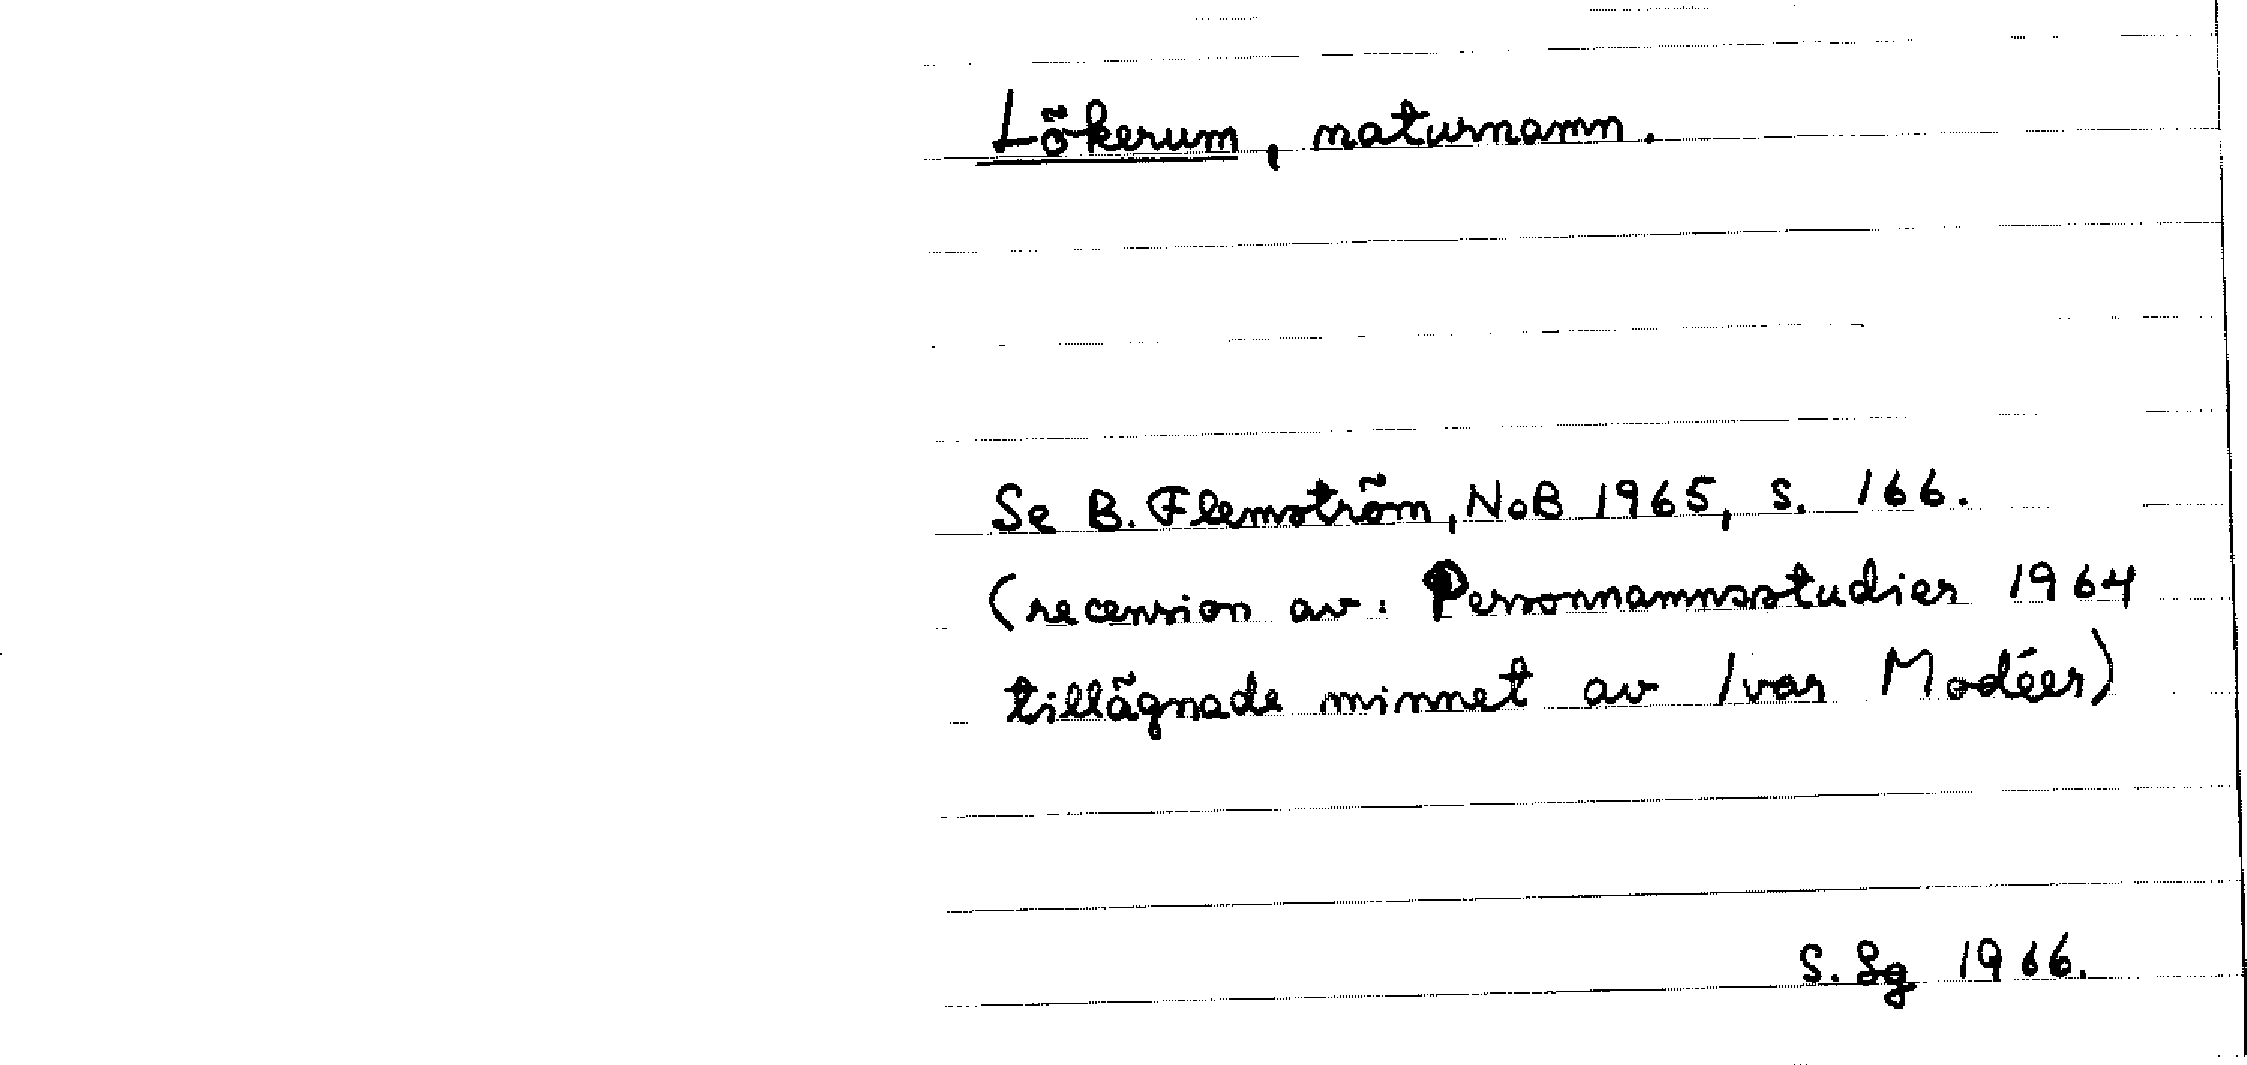 Lökerum, naturnamn.
Se B. Flemström, NoB 1965, s. 166.
(recension av: Personnamnsstudier 1964
tillägnade minnet av Ivar Modéer)
S. Sg 1966.